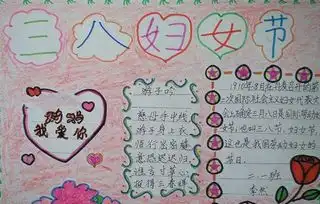 三八妇女节
妈妈
我爱你
游子吟
慈母手中线
游子身上衣
临行密密缝
意恐迟迟归
谁言寸草心
报得三春晖
1910年8月在丹麦召开的第
二次国际社会主义妇女代表大
会上确定三月八日是国际劳动妇
女节,也叫三八节,妇女节,
这也是我国劳动妇女的
节日。
二.一班